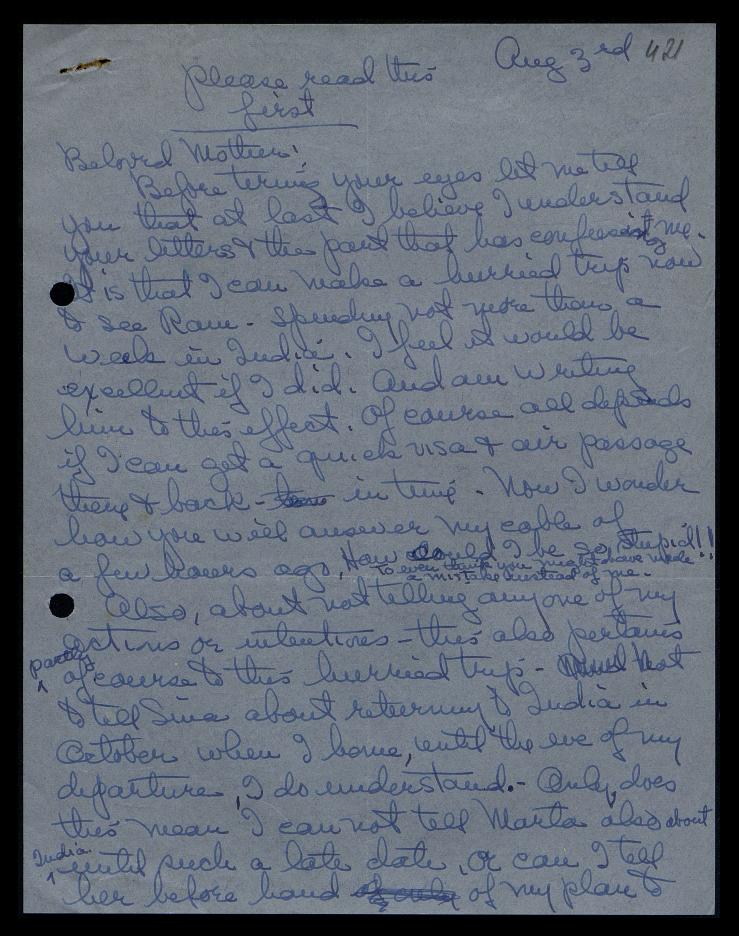 Aug 3rd 421
please read this
first
Beloved Mother!
Before tiring your eyes let me tell
you that at last I believe I understand
your letters & the part that has confused me.
It is that I can make a hurried trip now
to see Ram - spending not more than a
week in India. I feel it would be
excellent if I did. And am writing
him to this effect. Of course all depends
if I can get a quick visa & air passage
there & back - in time. Now I wonder
how you will answer my cable of
a few hours ago. How could I be so stupid!!
to even think you might have made
a mistake instead of me.
Also, about not telling anyone of my
actions or intentions - this also pertains
partly
of course to this hurried trip - Not
to tell Sina about returning to India in
October when I home, until the eve of my
departure, I do understand. - Only, does
this mean I can not tell Marta also about
India
until such a late date, or can I tell
her before hand of my plan to